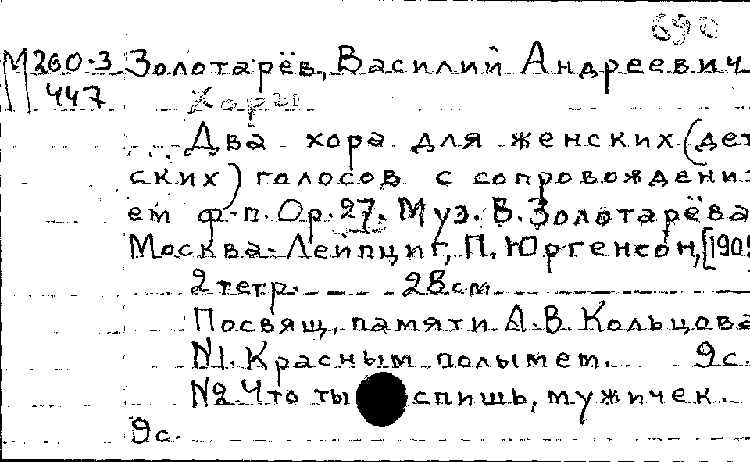 690
М 260-3 Золотарёв, Василий Андреевич
447 Хоры
Два хора для женских (дет
ских) голосов с сопровождени-
ем ф.-п. Op. 27. Муз. В. Золотарёва
Москва-Лейпциг, П. Юргенсон, [190
2 тетр. 28 см
Посвящ. памяти А.В. Кольцова
№1. Красным полымем. 9 с.
№2. Что ты спишь, мужичек.
9 с.